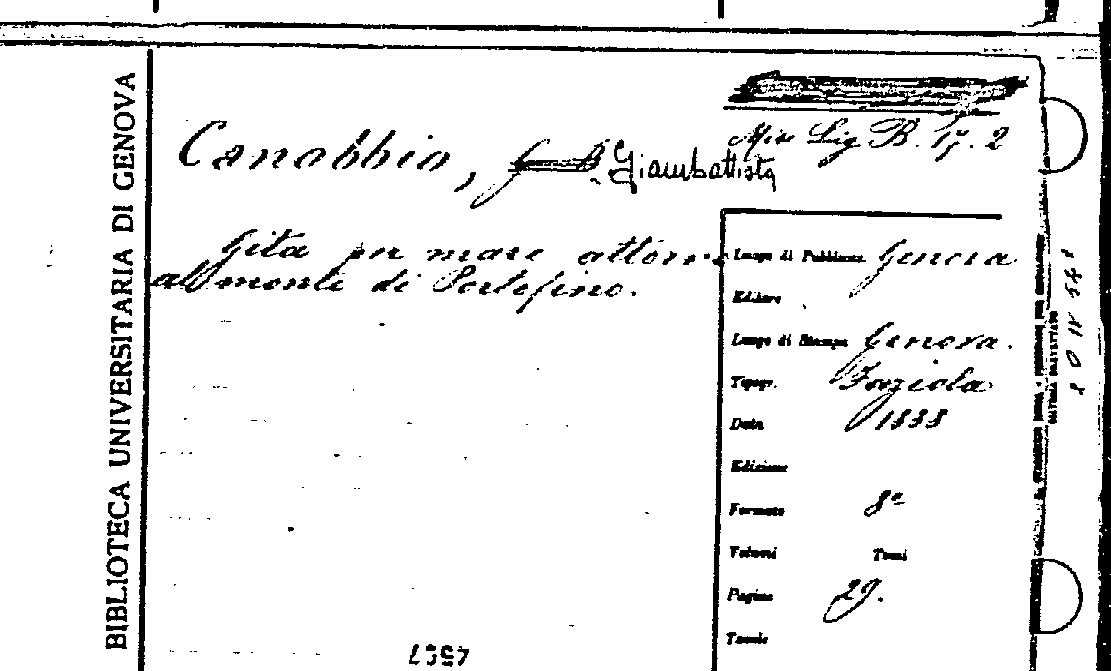 BIBLIOTECA UNIVERSITARIA DI GENOVA
Misc Lig B. 17. 2
Canobbio, Giambattista
Gita per mare attorno
al monte di Portofino.
Luogo di Pubblicaz. Genova
Editore
Luogo di Stampa Genova.
Tipogr.
Data 1888
Edizione
Formato 8°
Volumi Tomi
Pagine 29.
Tavole